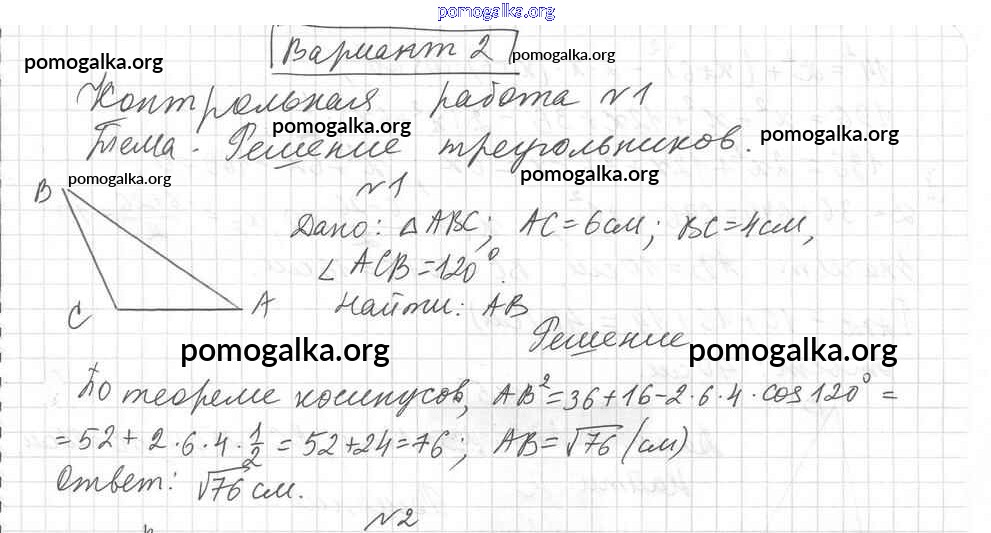 pomogalka.org
Вариант 2
pomogalka.org
pomogalka.org
Контрольная работа №1
pomogalka.org
pomogalka.org
Тема. Решение треугольников.
pomogalka.org
pomogalka.org
№1
B
C
A
Дано: △ABC; AC=6см; BC=4см,
∠ACB=120°
Найти: AB
Решение
pomogalka.org
pomogalka.org
По теореме косинусов, AB²=36+16-2·6·4·cos120°=
=52+2·6·4·1/2=52+24=76; AB=√76 (см)
Ответ: √76 см.
№2